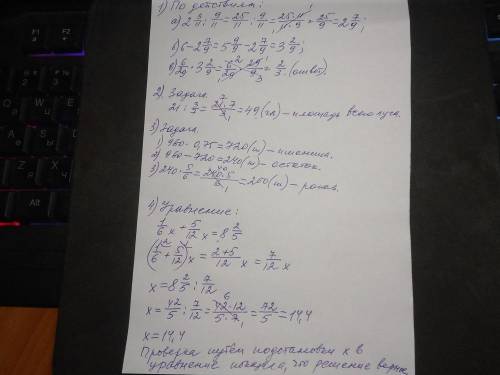 1) По действиям:
а) 2 3/11 : 9/11 = 25/11 : 9/11 = 25·11/11·9 = 25/9 = 2 7/9;
б) 6 - 2 7/9 = 5 9/9 - 2 7/9 = 3 2/9;
в) 6/29 · 3 2/9 = 6/29 · 29/9 = 2/3. (ответ).
2) Задача.
21 : 3/7 = 21·7/3 = 49 (га) - площадь всего луга.
3) Задача.
1) 960 · 0,75 = 720 (т) - пшеница.
2) 960 - 720 = 240 (т) - остаток.
3) 240 · 5/6 = 240·5/6 = 200 (т) -
4) Уравнение:
1/6 x + 5/12 x = 8 2/5
(1/6 + 5/12) x = 2+5/12 x = 7/12 x
x = 8 2/5 : 7/12
x = 42/5 : 7/12 = 42·12/5·7 = 72/5 = 14,4
x = 14,4
Проверка путём подстановки x в
уравнение показала, что решение верно.